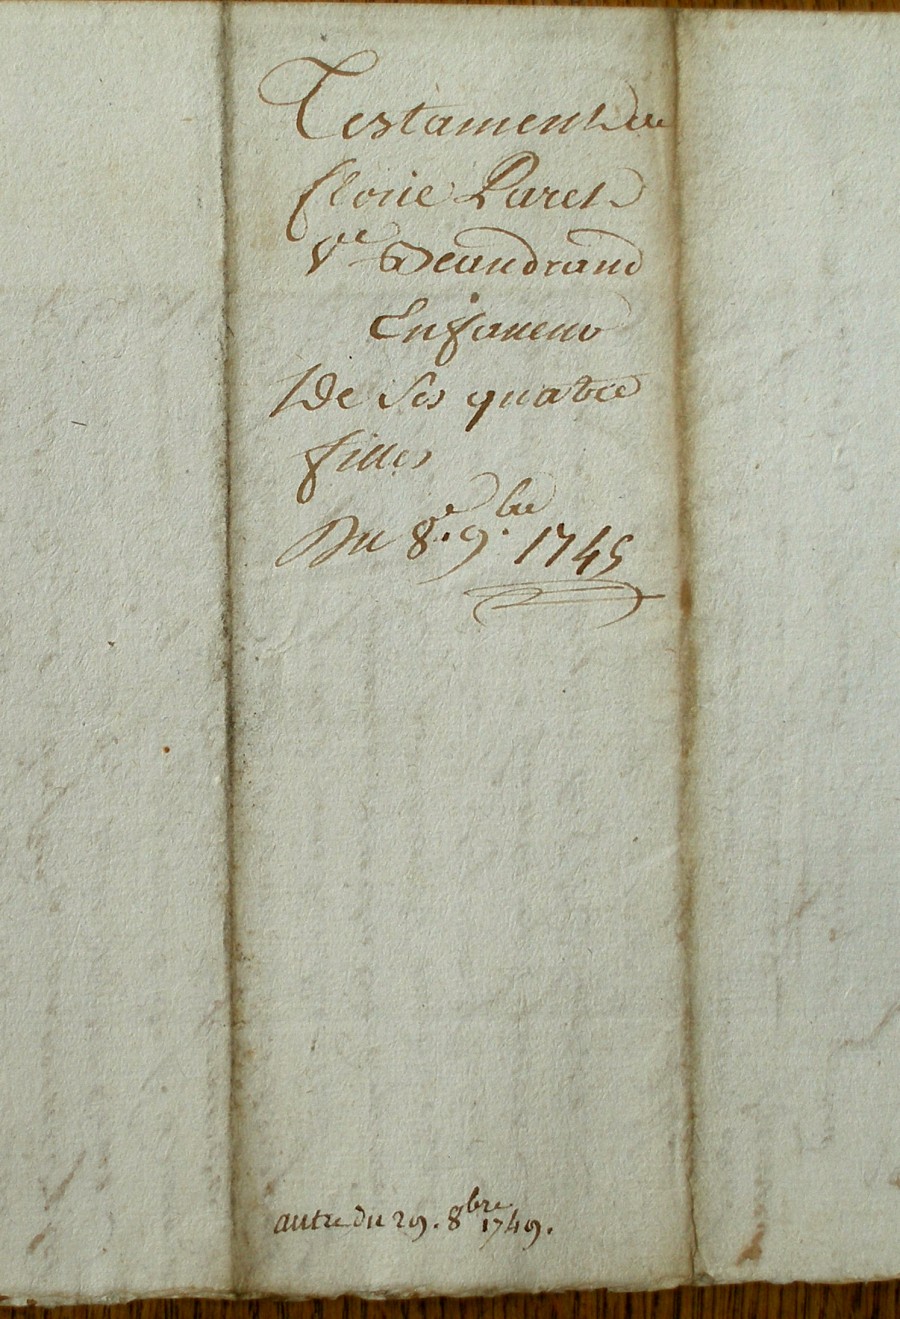 Testament de
Cloue Paret
Ve Deandrand
En faveur
De Ses quatre
filles
Du 8e. 9.bre 1745
autre du 29. 8bre 1749.